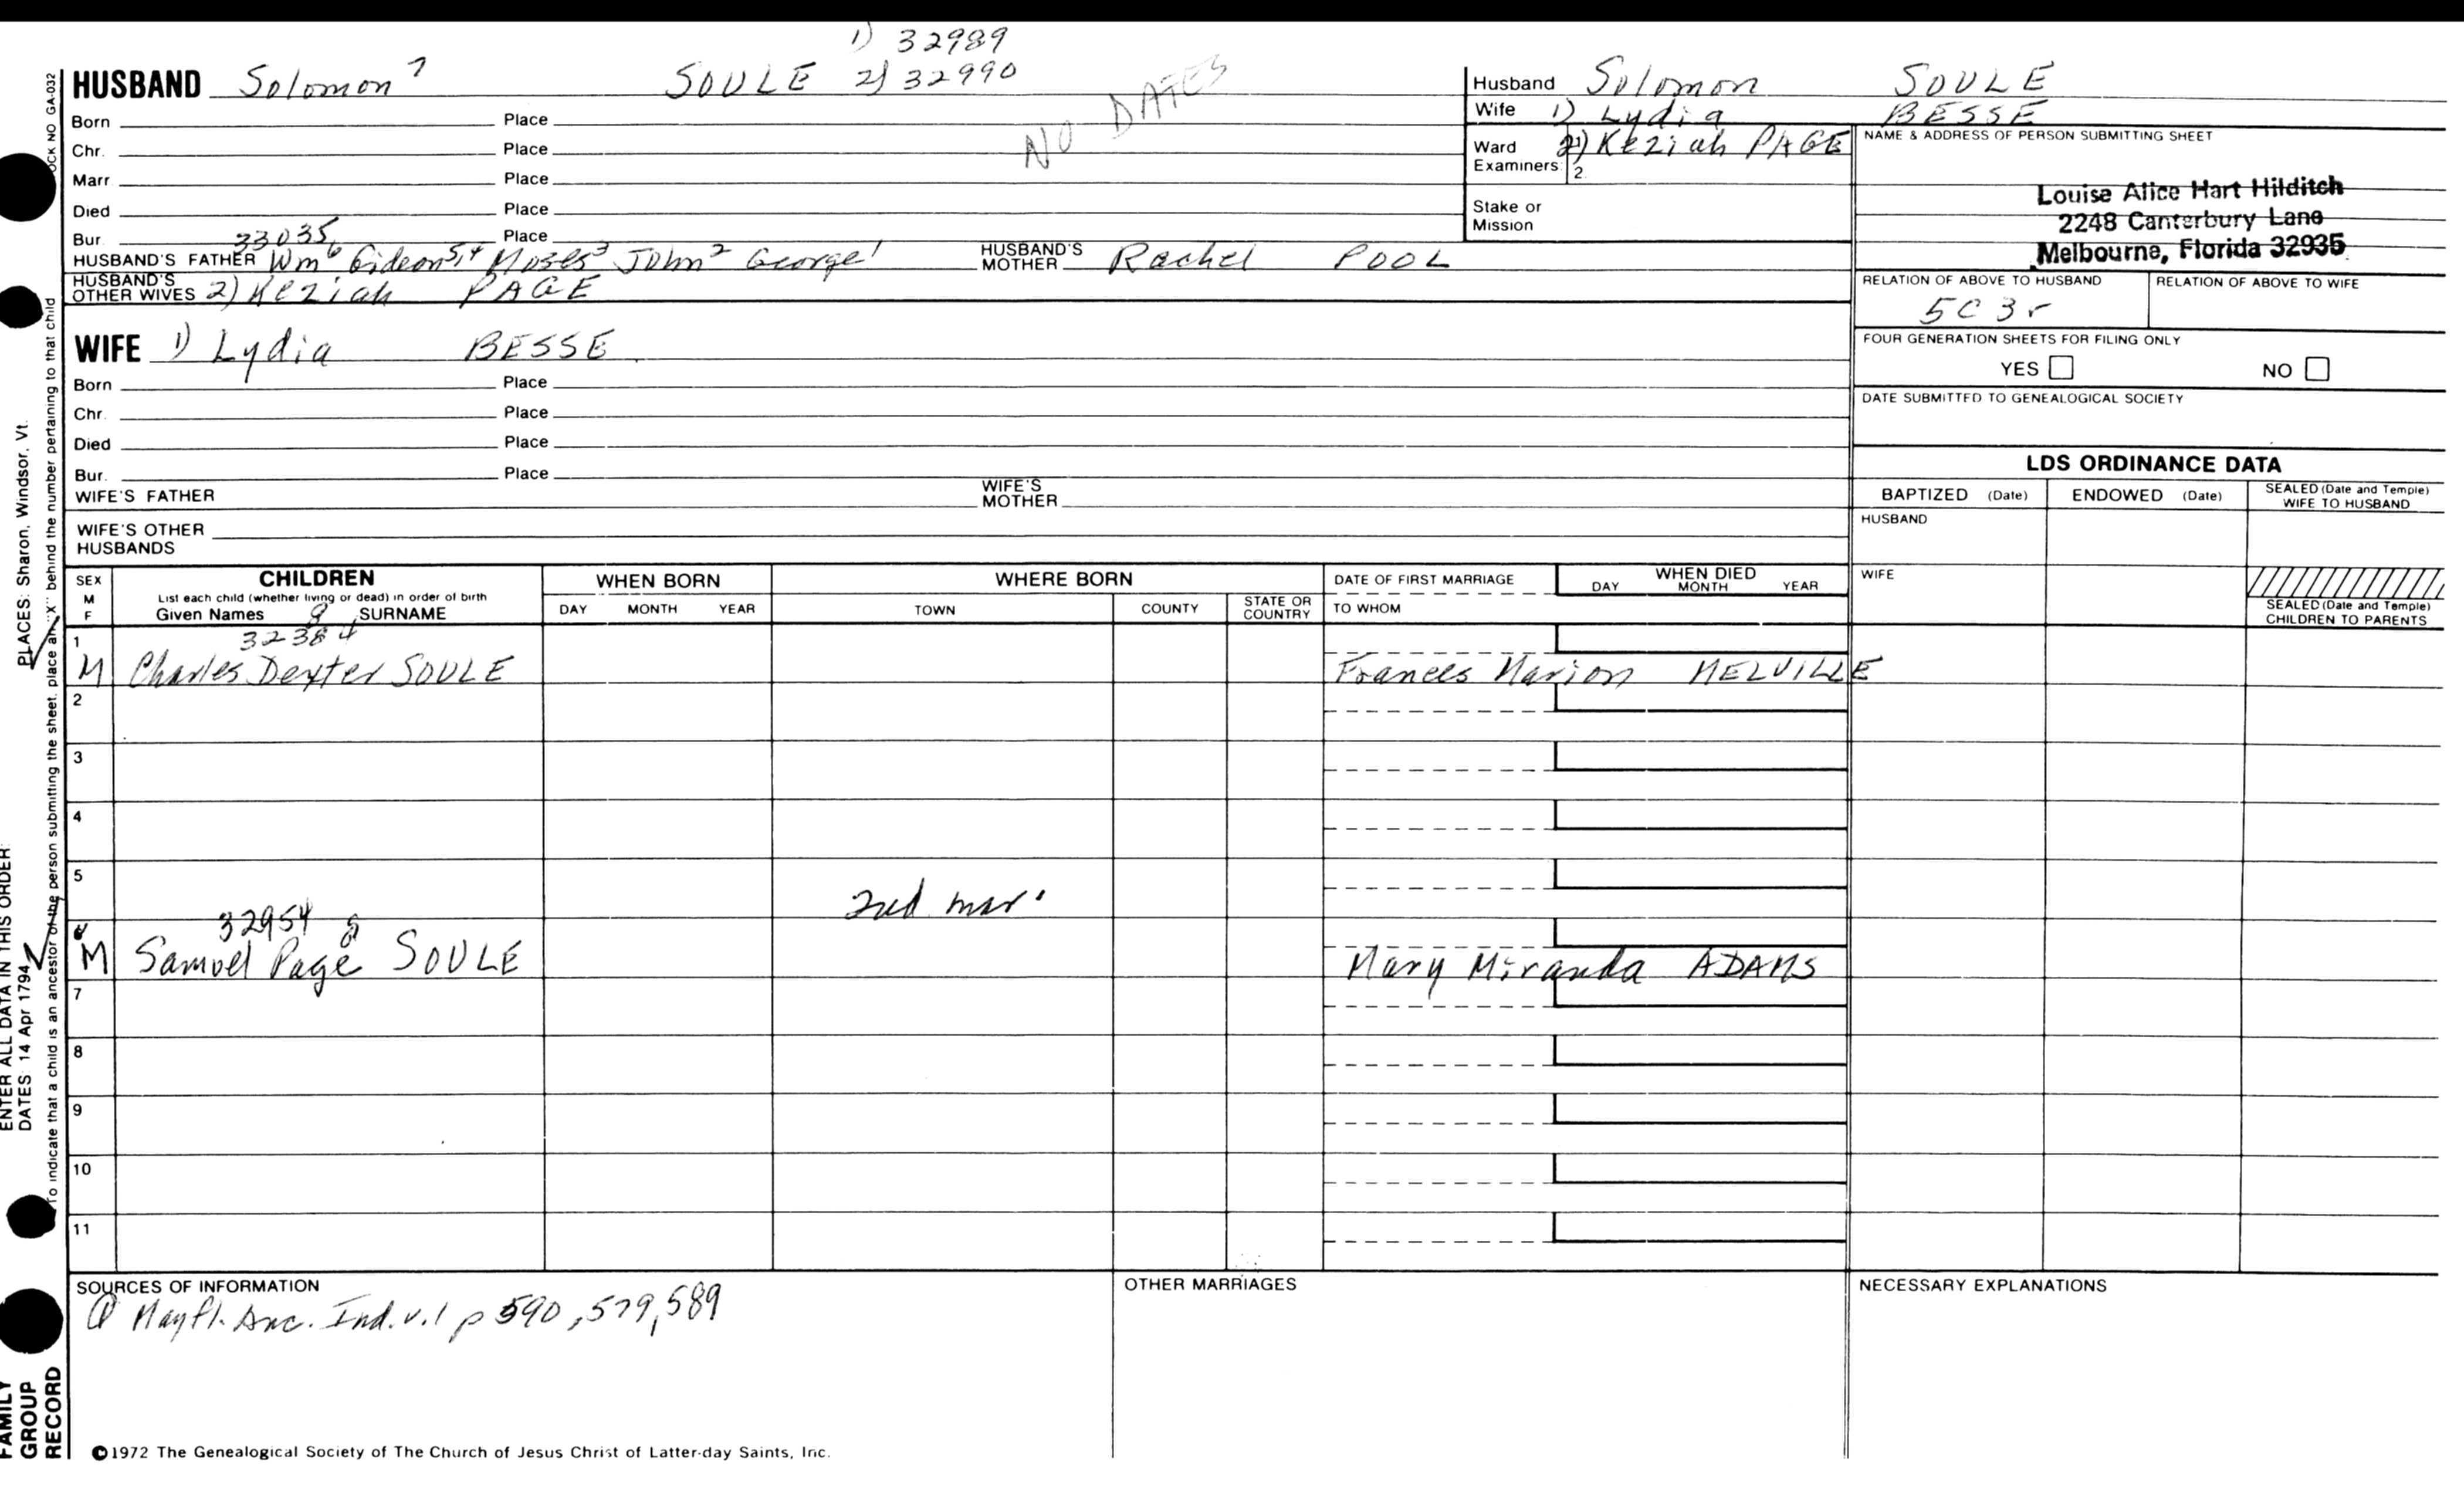 1) 32989
HUSBAND Solomon 7 SOULE 2) 32990
NO DATES
Born Place
Chr. Place
Marr Place
Died Place
Bur. 33035 Place
HUSBAND'S FATHER Wm 6 Gideon 5,4 Moses 3 John 2 George 1 HUSBAND'S MOTHER Rachel POOL
HUSBAND'S OTHER WIVES 2) Keziah PAGE
WIFE 1) Lydia BESSE
Born Place
Chr. Place
Died Place
Bur. Place
WIFE'S FATHER WIFE'S MOTHER
WIFE'S OTHER HUSBANDS
Husband Solomon SOULE
Wife 1) Lydia BESSE
Ward 2) Keziah PAGE
Examiners: 2.
Stake or Mission
NAME & ADDRESS OF PERSON SUBMITTING SHEET
Louise Alice Hart Hilditch
2248 Canterbury Lane
Melbourne, Florida 32935
RELATION OF ABOVE TO HUSBAND RELATION OF ABOVE TO WIFE
5C 3r
FOUR GENERATION SHEETS FOR FILING ONLY
YES NO
DATE SUBMITTED TO GENEALOGICAL SOCIETY
LDS ORDINANCE DATA
BAPTIZED (Date) ENDOWED (Date) SEALED (Date and Temple) WIFE TO HUSBAND
HUSBAND
WIFE
SEALED (Date and Temple)
CHILDREN TO PARENTS
SEX M F CHILDREN WHEN BORN WHERE BORN DATE OF FIRST MARRIAGE WHEN DIED
List each child (whether living or dead) in order of birth
Given Names SURNAME DAY MONTH YEAR TOWN COUNTY STATE OR COUNTRY TO WHOM DAY MONTH YEAR
1 32384 8
M Charles Dexter SOULE Frances Marion MELVILLE
2
3
4
5
2nd mar.
32954 8
M Samuel Page SOULE Mary Miranda ADAMS
7
8
9
10
11
SOURCES OF INFORMATION OTHER MARRIAGES NECESSARY EXPLANATIONS
Mayfl. Anc. Ind. v.1 p 590, 579, 589
©1972 The Genealogical Society of The Church of Jesus Christ of Latter-day Saints, Inc.
OCK NO GA-032
To indicate that a child is an ancestor of the person submitting the sheet, place an "X" behind the number pertaining to that child
PLACES: Sharon, Windsor, Vt.
ENTER ALL DATA IN THIS ORDER:
DATES: 14 Apr 1794
FAMILY
GROUP
RECORD